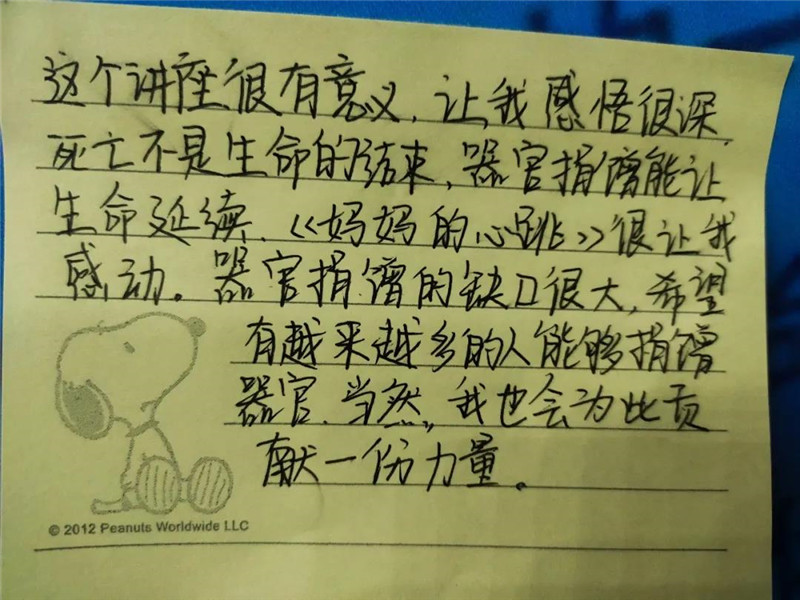 这个讲座很有意义，让我感悟很深，
死亡不是生命的结束，器官捐赠能让
生命延续，《妈妈的心跳》很让我
感动。器官捐赠的缺口很大，希望
有越来越多的人能够捐赠
器官，当然，我也会为此贡
献一份力量。
© 2012 Peanuts Worldwide LLC